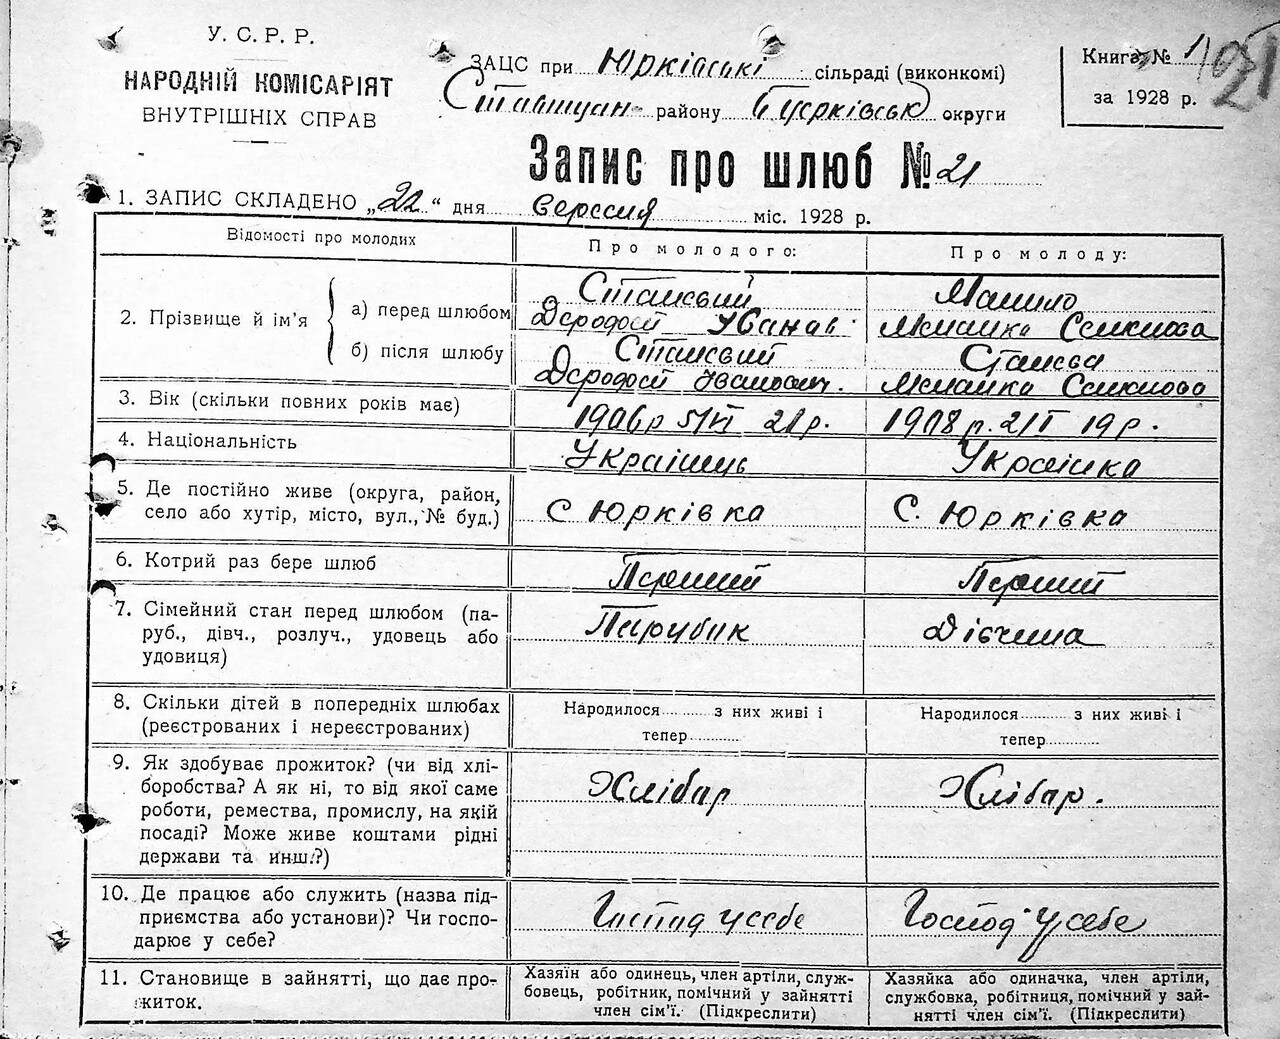 У. С. Р. Р.
НАРОДНІЙ КОМІСАРІЯТ
ВНУТРІШНІХ СПРАВ
ЗАЦС при Юрківські сільраді (виконкомі)
району округи
Книга № 1
за 1928 р.
Запис про шлюб № 21
1. ЗАПИС СКЛАДЕНО „22“ дня вересня міс. 1928 р.
Відомості про молодих
Про молодого:
Про молоду:
2. Прізвище й ім'я
а) перед шлюбом
б) після шлюбу
3. Вік (скільки повних років має)
1906 р 5/VI 21 р.
1908 р. 2/I 19 р.
4. Національність
Українець
Українка
5. Де постійно живе (округа, район,
село або хутір, місто, вул., № буд.)
С Юрківка
С. Юрківка
6. Котрий раз бере шлюб
Перший
Перший
7. Сімейний стан перед шлюбом (па-
руб., дівч., розлуч., удовець або
удовиця)
Парубак
Дівчина
8. Скільки дітей в попередніх шлюбах
(реєстрованих і нереєстрованих)
Народилося.......... з них живі і
тепер............
Народилося.......... з них живі і
тепер............
9. Як здобуває прожиток? (чи від хлі-
боробства? А як ні, то від якої саме
роботи, ремества, промислу, на якій
посаді? Може живе коштами рідні
держави та инш.?)
Хлібар
Хлібар.
10. Де працює або служить (назва під-
приємства або установи)? Чи госпо-
дарює у себе?
Господ у себе
Господ у себе
11. Становище в зайнятті, що дає про-
житок.
Хазяїн або одинець, член артілі, служ-
бовець, робітник, помічний у зайнятті
член сім'ї. (Підкреслити)
Хазяйка або одиначка, член артіли,
службовка, робітниця, помічний у зай-
нятті член сім'ї. (Підкреслити)